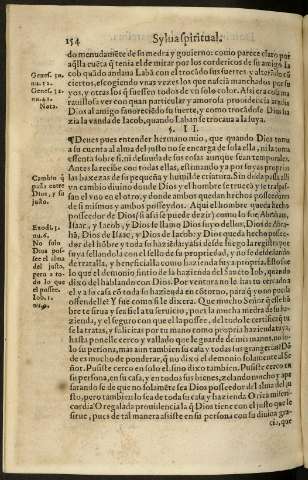 154 Sylua spiritual.
do menudamēte de su medra y gouierno: como parece claro por
aq̄lla cuēta q̄ tenia el de mirar por los cordericos de su amigo la
cob quādo andaua Labā con el trocādo sus suertes y alterādo cō
ciertos, escogiendo vnas vezes los que naciā manchados por su
yos, y otras los q̄ fuessen todos de vn solo color. Assi era cosa ma
rauillosa ver con quan particular y amorosa prouidencia atendia
Dios al amigo fauorecido su suerte, y como trocādose Dios ha
zia la vanda de Iacob, quando Laban se trocaua a la suya.
§. II.
¶ Deues pues entender hermano mio, que quando Dios toma
a su cuenta al alma del justo no se encarga de sola ella, ni la toma
essenta sobre si, ni desnuda de sus cosas aunque sean temporales.
Antes la recibe con todas ellas, estimando ya por suyas proprias
las baxezas de su pequeña y humilde criatura. Sin duda passa alli
vn cambio diuino donde Dios y el hombre se trueca y se traspas-
san el vno en el otro, y donde ambos quedan hechos posseedores
de si mismos y ambos posseydos. Aqui el hombre queda hecho
posseedor de Dios (si assi se puede dezir) como lo fue Abraham,
Isaac, y Iacob, y Dios se llamo Dios suyo dellos, Dios de Abra-
hā, Dios de Isaac, y Dios de Iacob: y Dios queda hecho possee-
dor del hōbre y toda su haziēda:
ya sellandola con el sello de su propriedad, y no se desdeñando
de tratalla, y beneficialla como hazienda propria.
que el demonio sintio de la hazienda del Sancto Iob, quando
dixo del hablando con Dios. Por ventura no le has tu cercado a
el y a su casa
offendelle? Y fue como si le dixera. Que mucho Señor q̄ este hō
bre te sirua y sea fiel a tu seruicio, pues
zienda, y el seguro con que el la possee,
se la tratas, y solicitas por tu mano como propria hazienda tuya,
hasta ponelle cerco y vallado que le guarde de mis manos, no so-
lo su persona, mas aun tambien su casa y todas sus grangerias? Dō
de es mucho de ponderar, q̄ no dixo el demonio solamente al Se-
ñor. Pusiste cerco en solo el. sino dixo tambien. Pusiste cerco en
su persona, en su casa, y en todos sus bienes,
sarando se de que no solamēte sea Dios posseedor del alma del ju
sto, pero tambien lo sea de toda su casa y hazienda. O rica miseri-
cordia! O regalada prouidencia la q̄ Dios tiene con el justo que le
sirue, pues de tal manera assiste en su persona con su diuina gra-
cia, que
Genes. 30.
Genes. 31.
Nota.
Cambio q̄
passa entre
Dios, y su
justo.
Exod. 3.
nu. 6.
No solo
Dios pos-
see el alma
del justo,
pero a to-
do lo que
el possee.
Iob. 1.